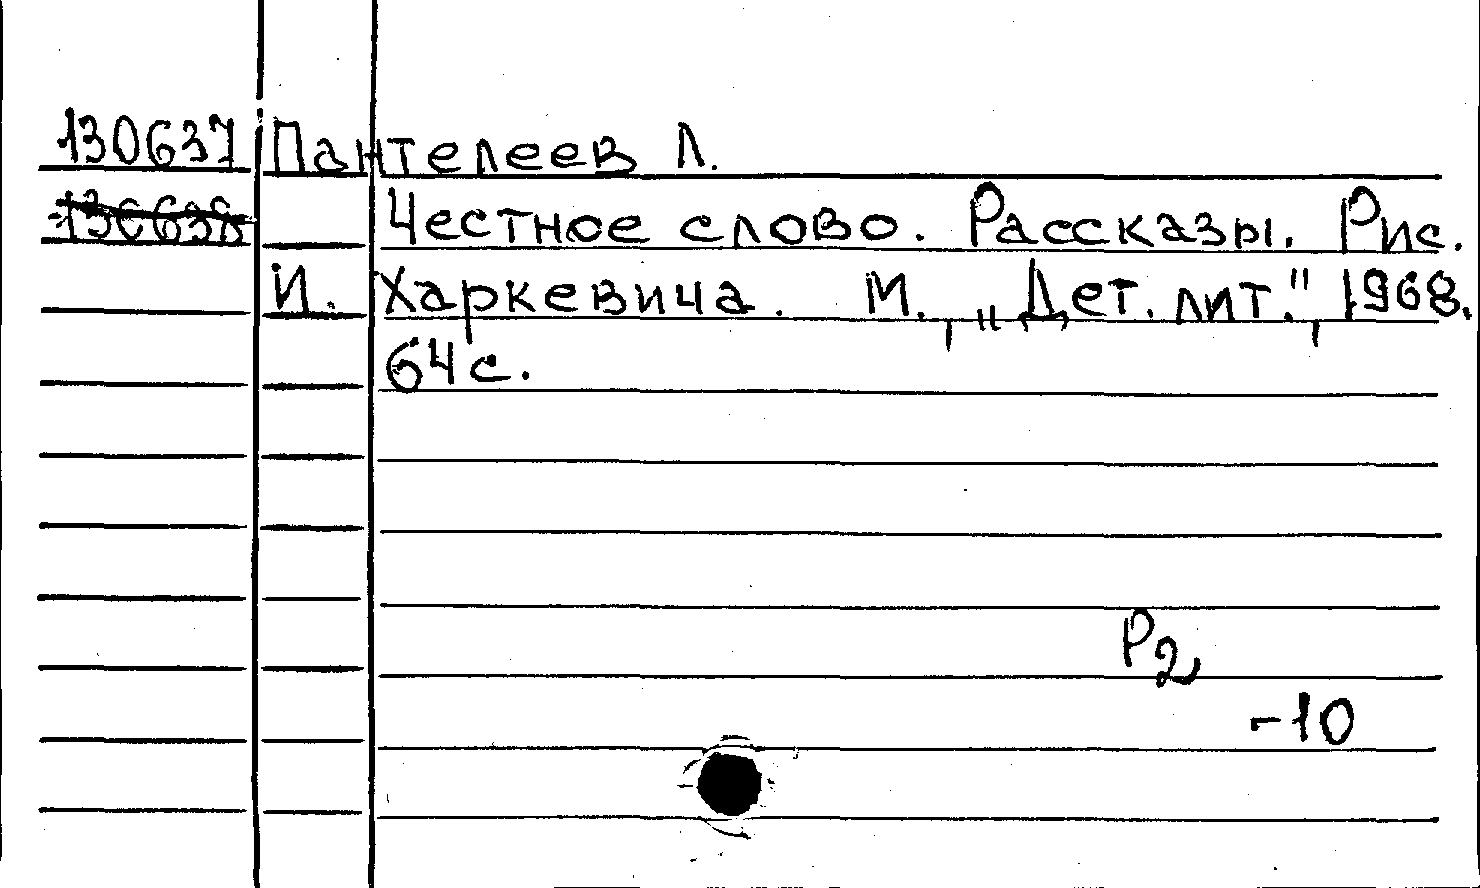 130637 Пантелеев Л.
130638 Честное слово. Рассказы. Рис.
И. Харкевича. М., „Дет. лит.", 1968.
64 с.
Р2
-10